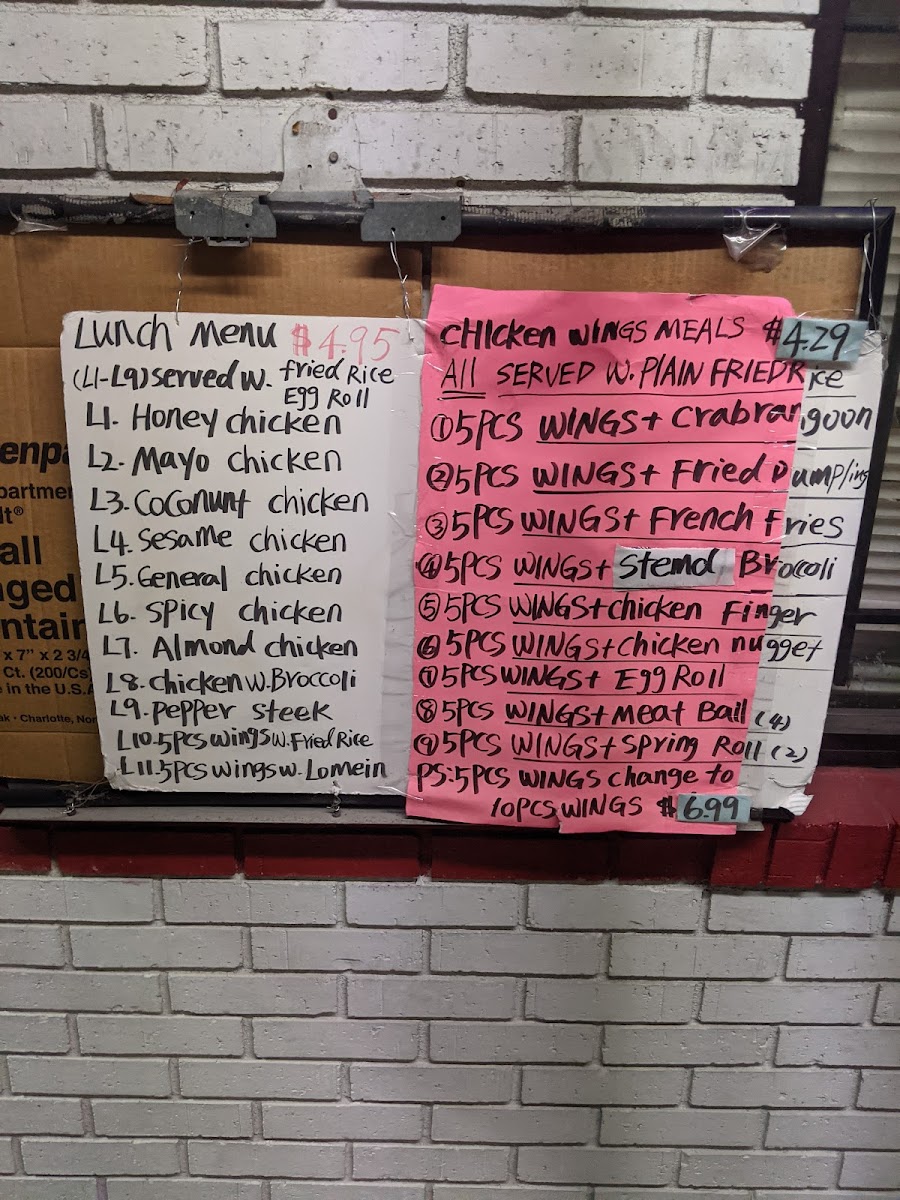 Lunch Menu $4.95
(L1-L9) served w. fried Rice
Egg Roll
L1. Honey chicken
L2. Mayo chicken
L3. Coconunt chicken
L4. Sesame chicken
L5. General chicken
L6. Spicy chicken
L7. Almond chicken
L8. chicken w. Broccoli
L9. Pepper steek
L10. 5pcs wings w. Fried Rice
L11. 5pcs wings w. Lomein
CHIcken WINGS MEALS $4.29
All SERVED W. PlAIN FRIED Rice
① 5PCS WINGS + Crabrangoon
② 5PCS WINGS + Fried Dumpling
③ 5PCS WINGS + French Fries
④ 5PCS WINGS + Stemd Broccoli
⑤ 5PCS WINGS + chicken Finger
⑥ 5PCS WINGS + Chicken nugget
⑦ 5PCS WINGS + Egg Roll
⑧ 5PCS WINGS + Meat Ball (4)
⑨ 5PCS WINGS + Spring Roll (2)
PS: 5PCS WINGS change to
10PCS WINGS $6.99
enpa
partme
lt®
all
ged
ntain
x 7" x 2 3/4
Ct. (200/Cs)
e in the U.S.A
ak • Charlotte, Nor